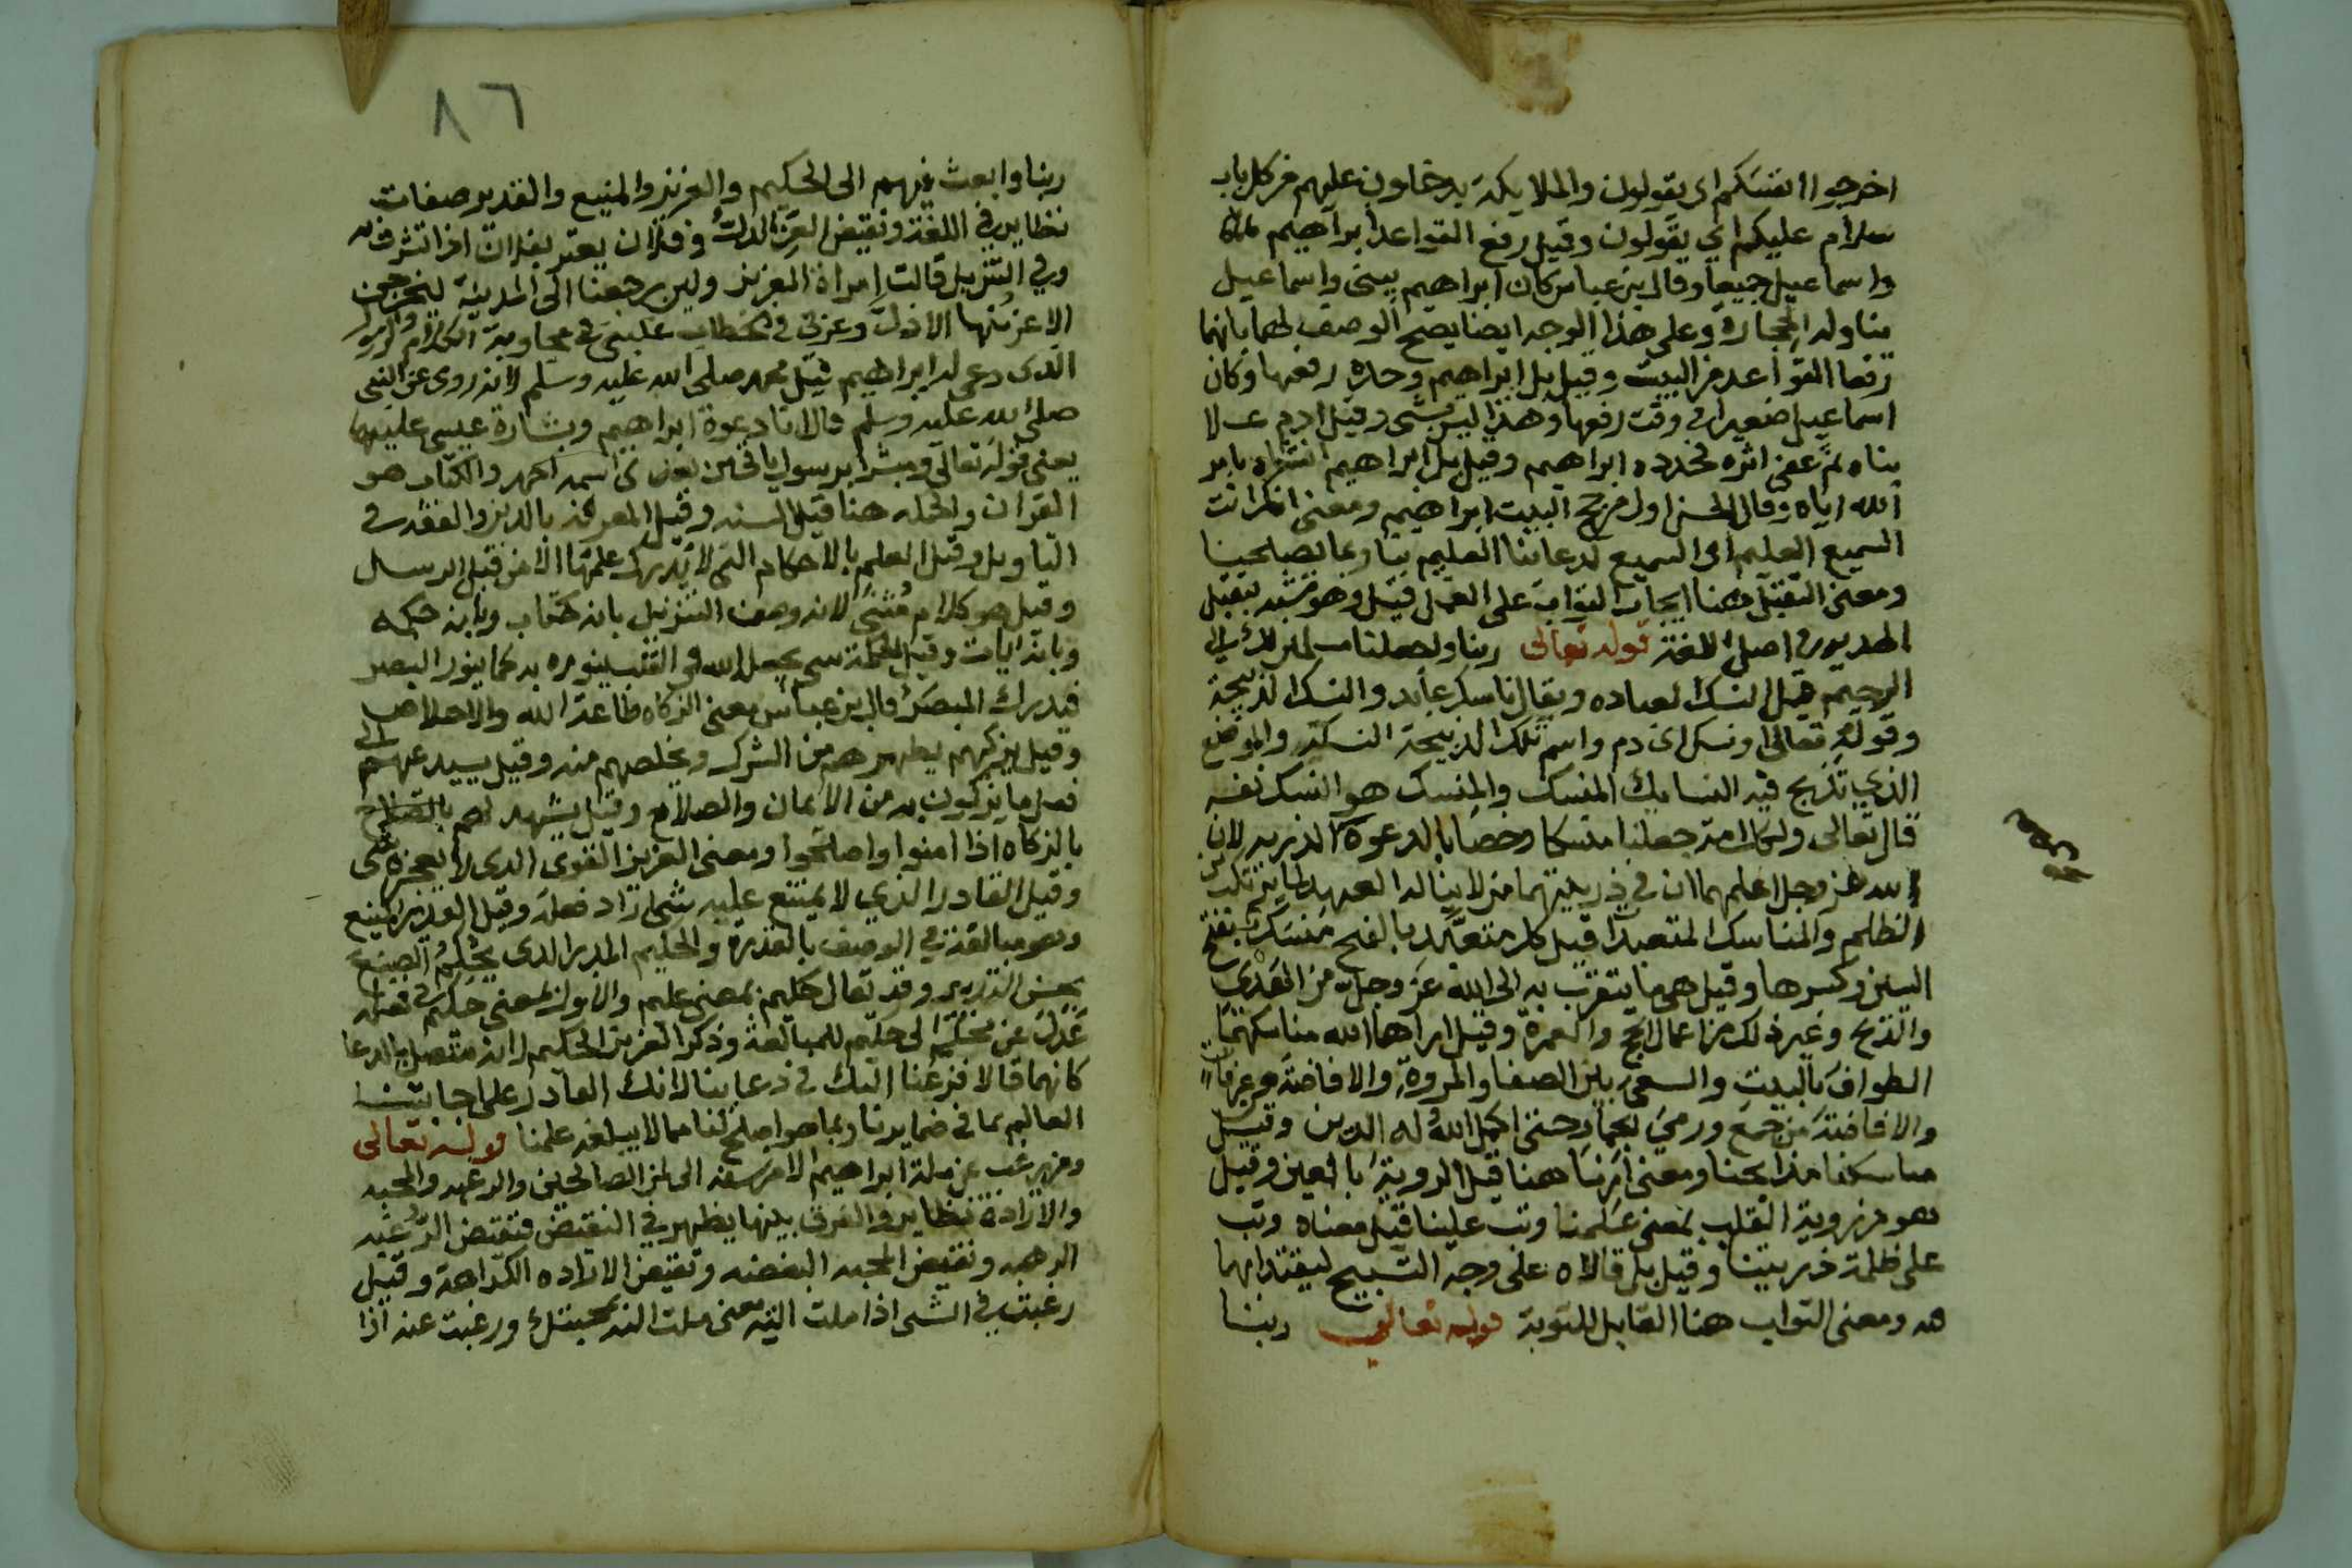 اخرجوا انفسكم اى يقولون والملايكة يدخلون عليهم من كل باب
سلام عليكم اي يقولون وقيل رفع القواعد ابراهيم
واسماعيل جميعا وقال بن عباس كان ابراهيم يبنى واسماعيل
يناوله الحجارة وعلى هذا الوجه ايضا يصح الوصف لهما بانهما
رفعا القواعد من البيت وقيل بل ابراهيم وحده رفعها وكان
اسماعيل صغيرا في وقت رفعها وهذا ليس بشى وقيل ادم
بناه ثم عفى اثره فجدده ابراهيم وقيل بل ابراهيم انشاه بامر
الله اياه وقال الحسن اول من حج البيت ابراهيم ومعنى انك انت
السميع العليم اى السميع لدعاينا العليم بنا وبما يصلحنا
ومعنى التقبل هنا ايجاب الثواب على العمل قيل وهو شبه بتقبل
الهديه في اصل اللغة قوله تعالى ربنا واجعلنا مسلمين لك الى
الرحيم قيل النسك العباده ويقال ناسك عابد والنسك الذبيحة
وقوله تعالى او نسك اى دم واسم تلك الذبيحة النسكة والموضع
الذي تذبح فيه النسايك المنسك والمنسك هو النسك نفسه
قال تعالى ولكل امة جعلنا منسكا وخصا بالدعوة الذريه لان
الله عز وجل اعلمهما ان في ذريتهما من لا ينال العهد لما يرتكب من
الظلم والمناسك المتعبدات قيل كل متعبد بالفتح منسك بفتح
السين وكسرها وقيل هى ما يتقرب به الى الله عز وجل من الهدى
والذبح وغير ذلك من اعمال الحج والعمرة وقيل اراهما الله مناسكهما
الطواف بالبيت والسعى بين الصفا والمروة والافاضة من عرفات
والافاضة من جمع ورمي الجمار حتى اكمل الله له الدين وقيل
مناسكنا مذابحنا ومعنى ارنا هنا قيل الروية بالعين وقيل
هو من روية القلب بمعنى علمنا وتب علينا قيل معناه وتب
على ظلمة ذريتنا وقيل بل قالاه على وجه التسبيح ليقتدا بهما
فيه ومعنى التواب هنا القابل للتوبة قوله تعالى ربنا
٨٦
ربنا وابعث فيهم الى الحكيم والعزيز والمنيع والقدير صفات
نظاير في اللغة ونقيض العز الذل وفلان يعتز بفلان اذا تشرف به
وفي التنزيل قالت امراة العزيز ولين رجعنا الى المدينة ليخرجن
الاعز منها الاذل وعزنى في الخطاب غلبنى في مجاوبة الكلام والرسول
الذى دعى له ابراهيم قيل محمد صلى الله عليه وسلم لانه روى عن النبى
صلى الله عليه وسلم قال انا دعوة ابراهيم وبشارة عيسى عليهما
يعنى قوله تعالى ومبشرا برسول ياتى من بعدى اسمه احمد والكتاب هو
القران والحكمه هنا قيل السنه وقيل المعرفة بالدين والفقه في
التاويل وقيل العلم بالاحكام التى لا يدرك علمها الا من قبل الرسل
وقيل هو كلام مثنى لانه وصف التنزيل بانه كتاب وبانه حكمه
وبانه ايات وقيل الحكمة شى يجعله الله في القلب ينوره به كما ينور البصر
فيدرك المبصر قال بن عباس معنى الزكاه طاعة الله والاخلاص
وقيل يزكيهم يطهرهم من الشرك ويخلصهم منه وقيل يستدعيهم الى
فعل ما يزكون به من الايمان والصلاح وقيل يشهد لهم
بالزكاه اذا امنوا واصلحوا ومعنى العزيز القوى الذى لا يعجزه شى
وقيل القادر الذي لا يمتنع عليه شى اراد فعله وقيل العزيز المنيع
وهو مبالغة في الوصف بالقدرة والحكيم المدبر الذى يحكم الصنع
بحسن التدبير وقد يقال حكيم بمعنى عليم والاول بمعنى حكيم في فعله
عدل عن محكم الى حكيم للمبالغة وذكر العزيز الحكيم لانه متصل بالدعا
كانهما قالا فزعنا اليك في دعاينا لانك القادر على اجابتنا
العالم بما في ضمايرنا وبما هو اصلح لنا مما لا يبلغه علمنا قوله تعالى
ومن يرغب عن ملة ابراهيم الا من سفه الى لمن الصالحين والرغبه والمحبه
والارادة نظاير والفرق بينها يظهر في النقيض فنقيض الرغبه
الرهبه ونقيض المحبه البغضه ونقيض الاراده الكراهة وقيل
رغبت في الشى اذا ملت اليه معنى ملت اليه بمحبتك ورغبت عنه اذا